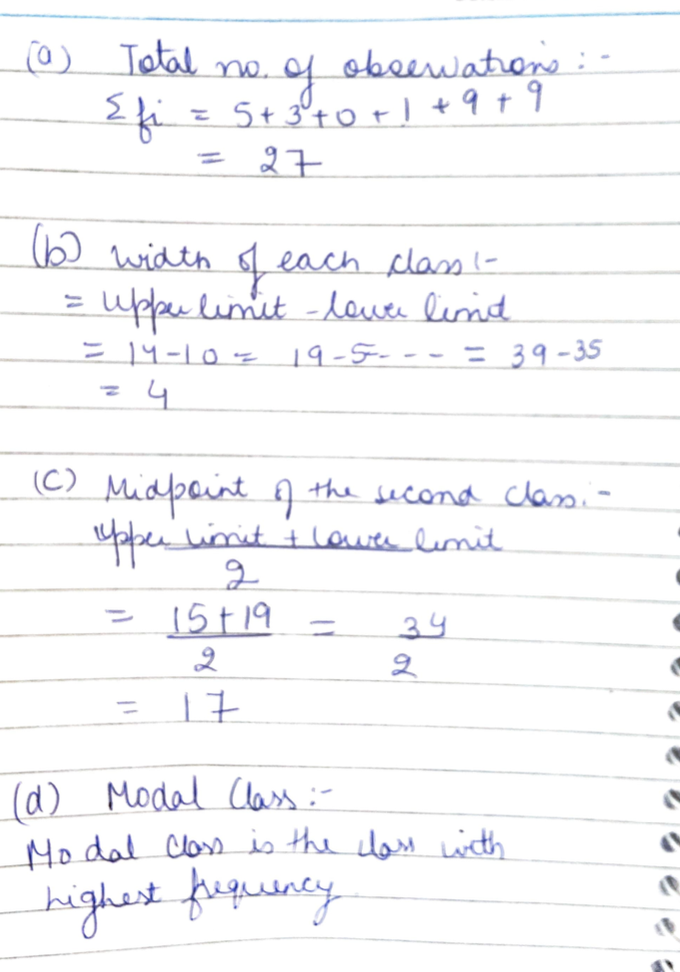 (a) Total no. of observations :-
Σfi = 5+3+0+1+9+9
= 27
(b) width of each class :-
= Upper limit - lower limit
= 14-10 = 19-5- - - - = 39-35
= 4
(c) Midpoint of the second class :-
Upper limit + lower limit
2
= 15+19 = 34
2 2
= 17
(d) Modal Class :-
Modal class is the class with
highest frequency